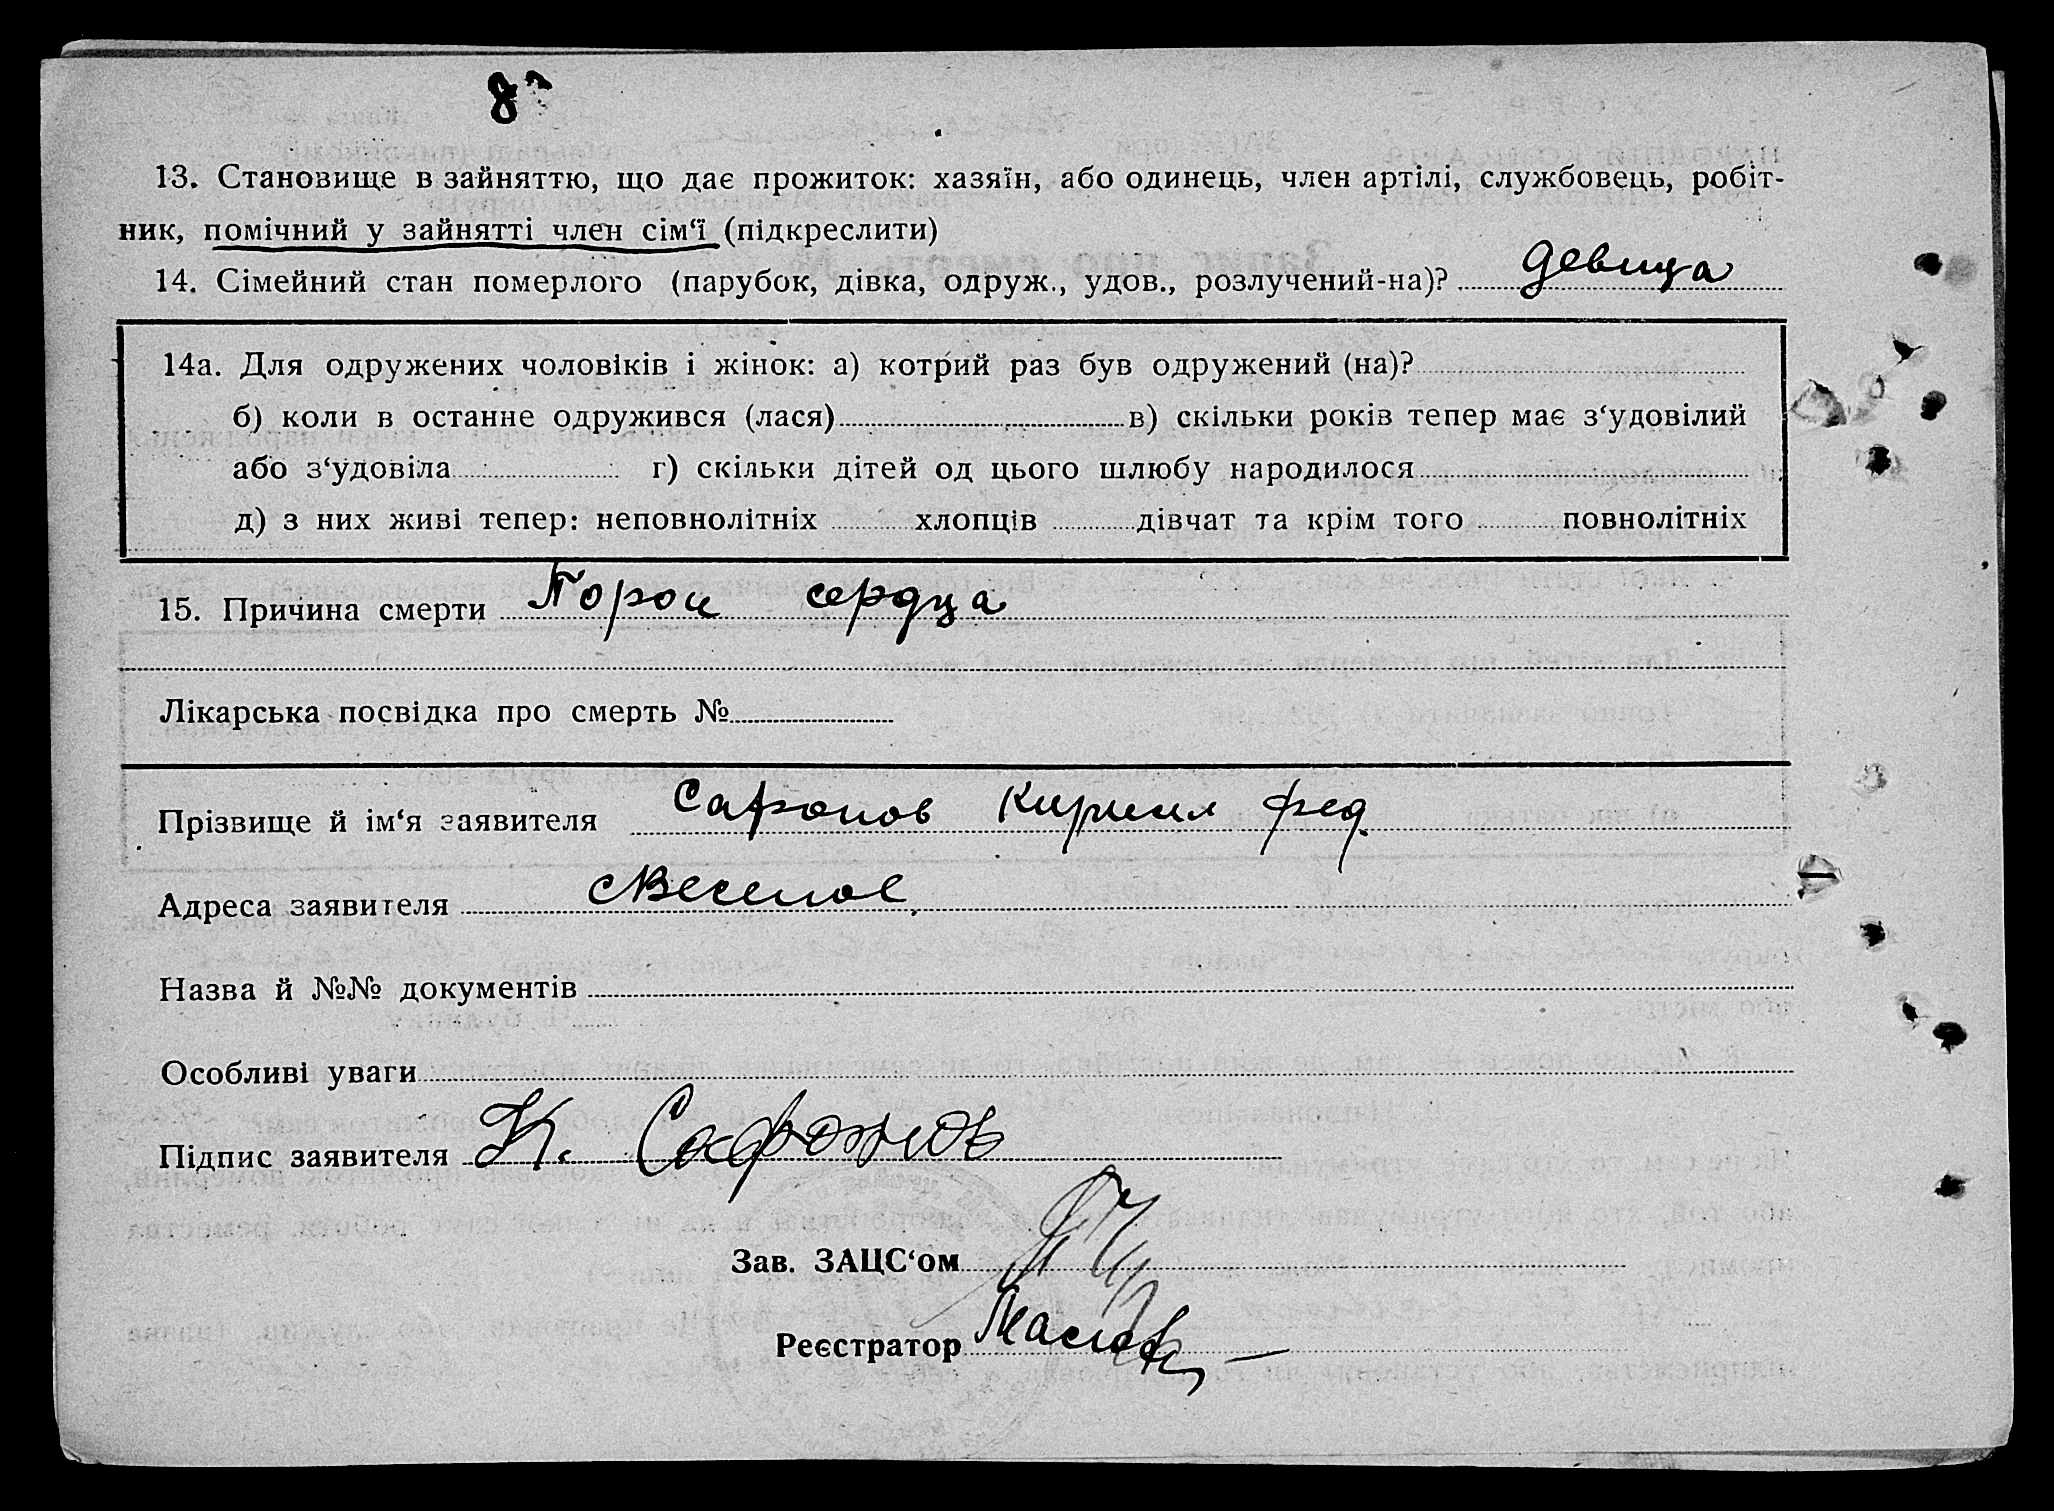 8
13. Становище в зайняттю, що дає прожиток: хазяїн, або одинець, член артілі, службовець, робіт-
ник, помічний у зайнятті член сім‘ї (підкреслити)
14. Сімейний стан померлого (парубок, дівка, одруж., удов., розлучений-на)? девица
14а. Для одружених чоловіків і жінок: а) котрий раз був одружений (на)?
б) коли в останне одружився (лася) в) скільки років тепер має з‘удовілий
або з‘удовіла г) скільки дітей од цього шлюбу народилося
д) з них живі тепер: неповнолітніх хлопців дівчат та крім того повнолітніх
15. Причина смерти Порок сердца
Лікарська посвідка про смерть №
Прізвище й ім‘я заявителя Сафонов Кирилл Фед.
Адреса заявителя с Веселое
Назва й №№ документів
Особливі уваги
Підпис заявителя К. Сафонов
Зав. ЗАЦС‘ом
Реєстратор